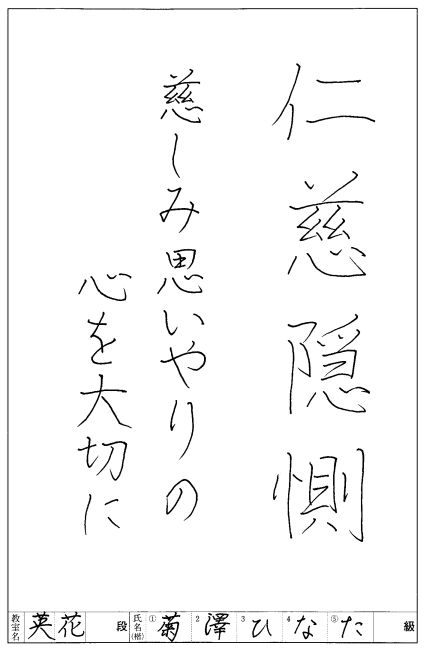 仁慈隠惻
慈しみ思いやりの
心を大切に
教室名 英花 段 氏名(楷) ①菊 2澤 3ひ 4な ⑤た 級